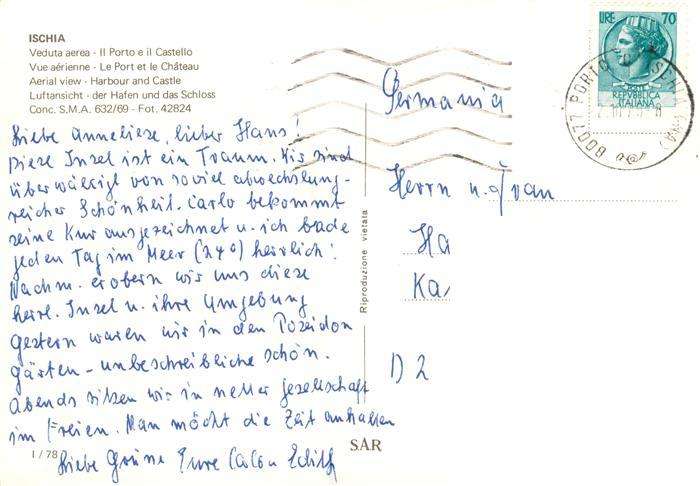 ISCHIA
Veduta aerea - Il Porto e il Castello
Vue aérienne - Le Port et le Château
Aerial view - Harbour and Castle
Luftansicht - der Hafen und das Schloss
Conc. S.M.A. 632/69 - Fot. 42824
Liebe Anneliese, lieber Hans!
Diese Insel ist ein Traum. Wir sind
überwältigt von soviel abwechslung-
reicher Schönheit. Carlo bekommt
seine Kur ausgezeichnet u. ich bade
jeden Tag im Meer (24°) herrlich!
Nachm. erobern wir uns diese
herrl. Insel u. ihre Umgebung
Gestern waren wir in den Poseidon
gärten - unbeschreibliche schön.
Abends sitzen wir in netter Gesellschaft
im Freien. Man möcht die Zeit anhalten
Liebe Grüsse Eure Carlo u Edith
I / 78
SAR
Riproduzione vietata
LIRE 70
REPVBBLICA
ITALIANA
80077 PORTO D'ISCHIA (NA)
Germania
Herrn u. Fran
Ha
Ka
D 2